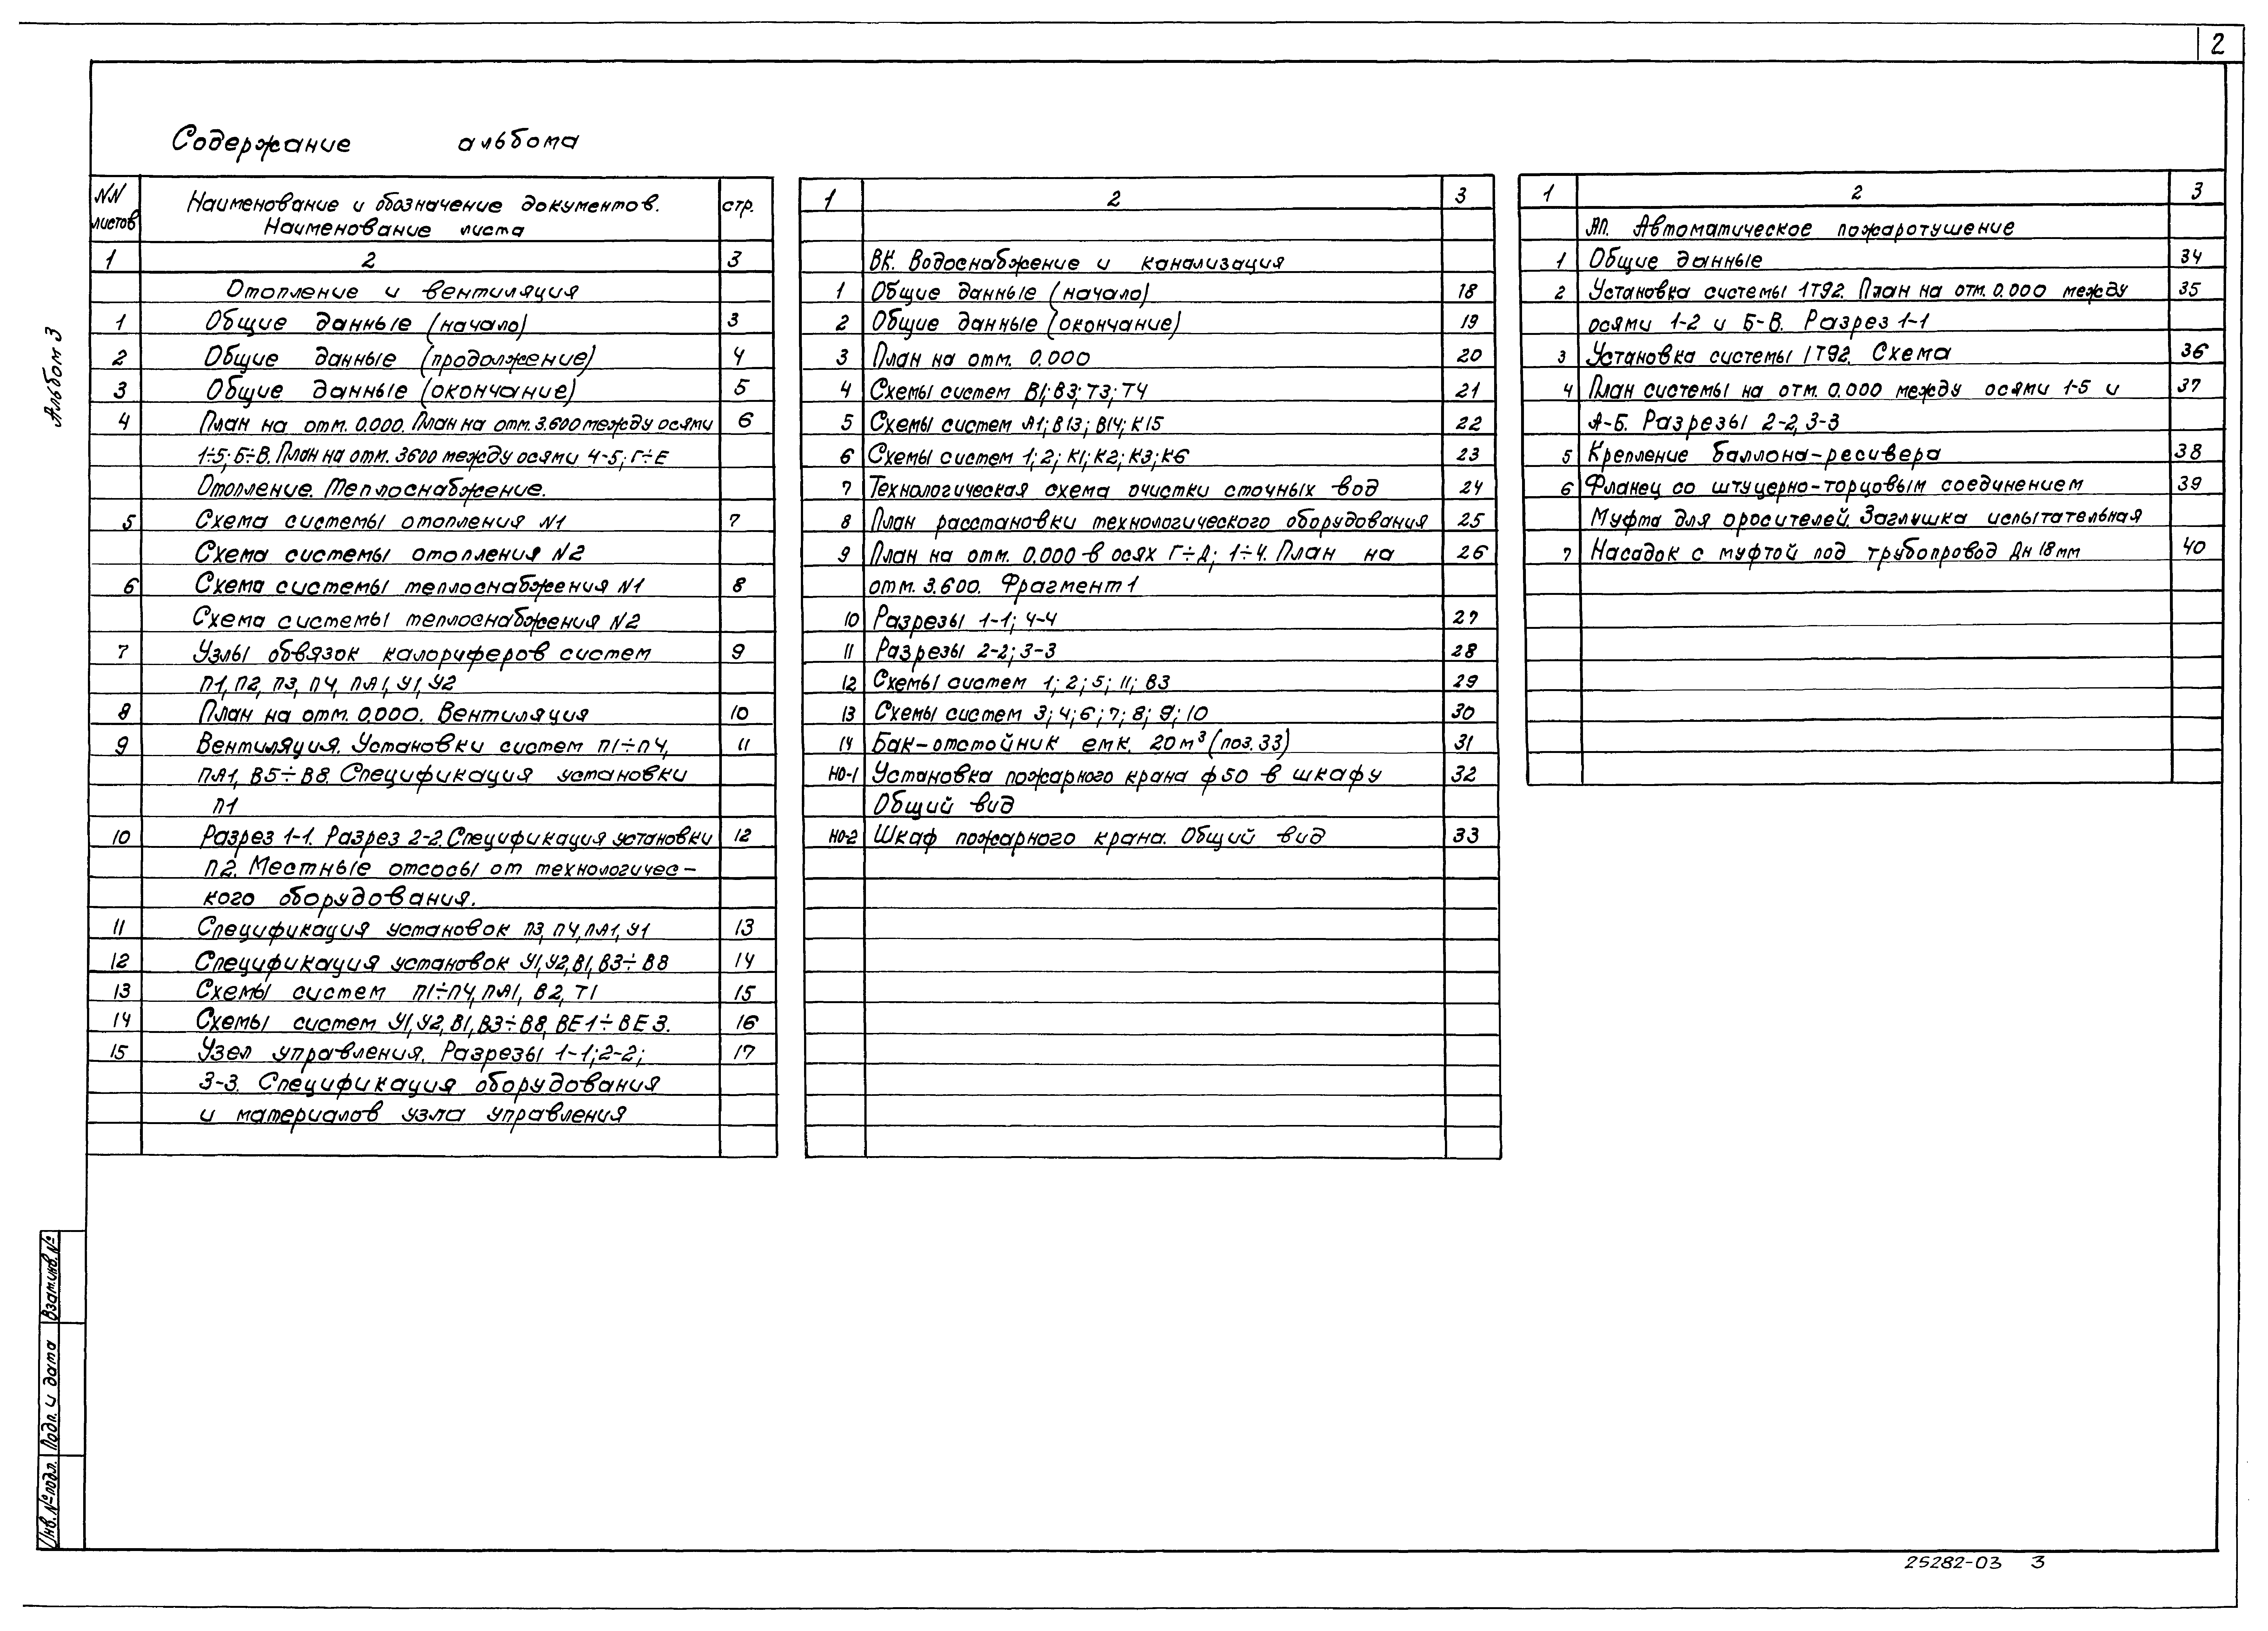 2
Содержание альбома
Альбом 3
NN листов Наименование и обозначение документов. Наименование листа стр.
1 2 3
Отопление и вентиляция
1 Общие данные (начало) 3
2 Общие данные (продолжение) 4
3 Общие данные (окончание) 5
4 План на отм. 0.000. План на отм. 3.600 между осями 6
1÷5; Б÷В. План на отм. 3600 между осями 4-5; Г÷Е
Отопление. Теплоснабжение.
5 Схема системы отопления N1 7
Схема системы отопления N2
6 Схема системы теплоснабжения N1 8
Схема системы теплоснабжения N2
7 Узлы обвязок калориферов систем 9
П1, П2, П3, П4, ПА1, У1, У2
8 План на отм. 0.000. Вентиляция 10
9 Вентиляция. Установки систем П1÷П4, 11
ПА1, В5÷В8. Спецификация установки
П1
10 Разрез 1-1. Разрез 2-2. Спецификация установки 12
П2. Местные отсосы от технологичес-
кого оборудования.
11 Спецификация установок П3, П4, ПА1, У1 13
12 Спецификация установок У1, У2, В1, В3÷В8 14
13 Схемы систем П1÷П4, ПА1, В2, Т1 15
14 Схемы систем У1, У2, В1, В3÷В8, ВЕ1÷ВЕ3. 16
15 Узел управления. Разрезы 1-1; 2-2; 17
3-3. Спецификация оборудования
и материалов узла управления
1 2 3
ВК. Водоснабжение и канализация
1 Общие данные (начало) 18
2 Общие данные (окончание) 19
3 План на отм. 0.000 20
4 Схемы систем В1; В3; Т3; Т4 21
5 Схемы систем А1; В13; В14; К15 22
6 Схемы систем 1; 2; К1; К2; К3; К6 23
7 Технологическая схема очистки сточных вод 24
8 План расстановки технологического оборудования 25
9 План на отм. 0.000 в осях Г÷Д; 1÷4. План на 26
отм. 3.600. Фрагмент 1
10 Разрезы 1-1; 4-4 27
11 Разрезы 2-2; 3-3 28
12 Схемы систем 1; 2; 5; 11; В3 29
13 Схемы систем 3; 4; 6; 7; 8; 9; 10 30
14 Бак-отстойник емк. 20м³ (поз. 33) 31
НО-1 Установка пожарного крана ф50 в шкафу 32
Общий вид
НО-2 Шкаф пожарного крана. Общий вид 33
1 2 3
АП. Автоматическое пожаротушение
1 Общие данные 34
2 Установка системы 1Т92. План на отм. 0.000 между 35
осями 1-2 и Б-В. Разрез 1-1
3 Установка системы 1Т92. Схема 36
4 План системы на отм. 0.000 между осями 1-5 и 37
А-Б. Разрезы 2-2, 3-3
5 Крепление баллона-ресивера 38
6 Фланец со штуцерно-торцовым соединением 39
Муфта для оросителей. Заглушка испытательная
7 Насадок с муфтой под трубопровод Дн 18мм 40
Взам.инв.№
Подп. и дата
Инв.№ подл.
25282-03 3